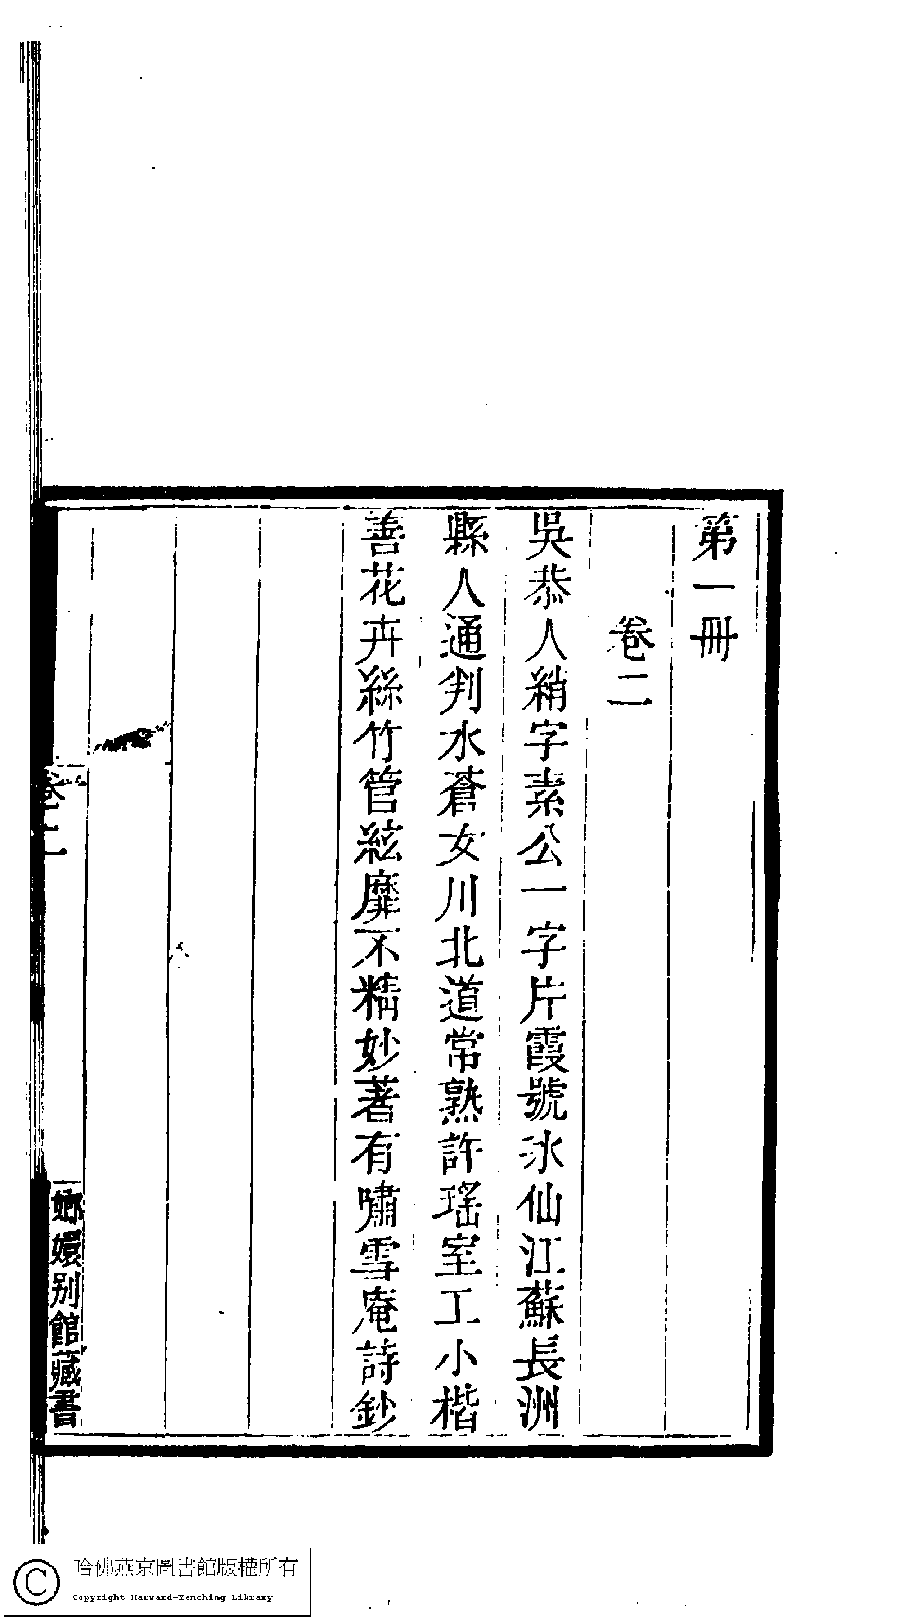 第一冊
卷二
吳恭人綃字素公一字片霞號冰仙江蘇長洲
縣人通判水蒼女川北道常熟許瑤室工小楷
善花卉絲竹管絃靡不精妙著有嘯雪庵詩鈔
卷二
嫏嬛别館藏書
哈佛燕京圖書館版權所有
Copyright Harvard-Yenching Library